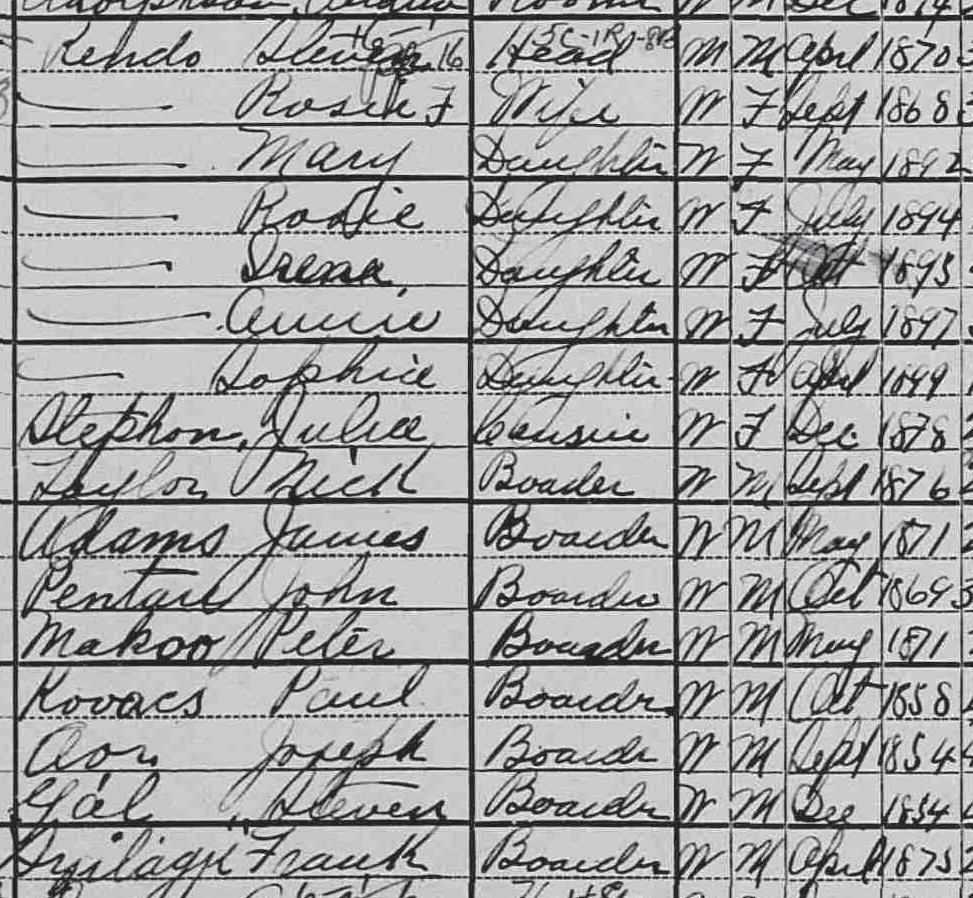 Kendo Steven 16 Head M M April 1870
Rosie F Wife W F Sept 1868
Mary Daughter W F May 1892
Rosie Daughter W F July 1894
Irena Daughter W F Oct 1895
Annie Daughter W F July 1897
Sophie Daughter W F April 1899
Stephon, Julia Cousin W F Dec 1878
Taylor Mick Boader W M Sept 1876
Adams James Boarder W M May 1871
John Boarder W M Oct 1869
Makoo Peter Boarder W M May 1871
Kovacs Paul Boarder W M Oct 1858
Joseph Boarder W M Sept 1854
Gál Steven Boarder W M Dec 1854
Szilágyi Frank Boarder W M April 1875